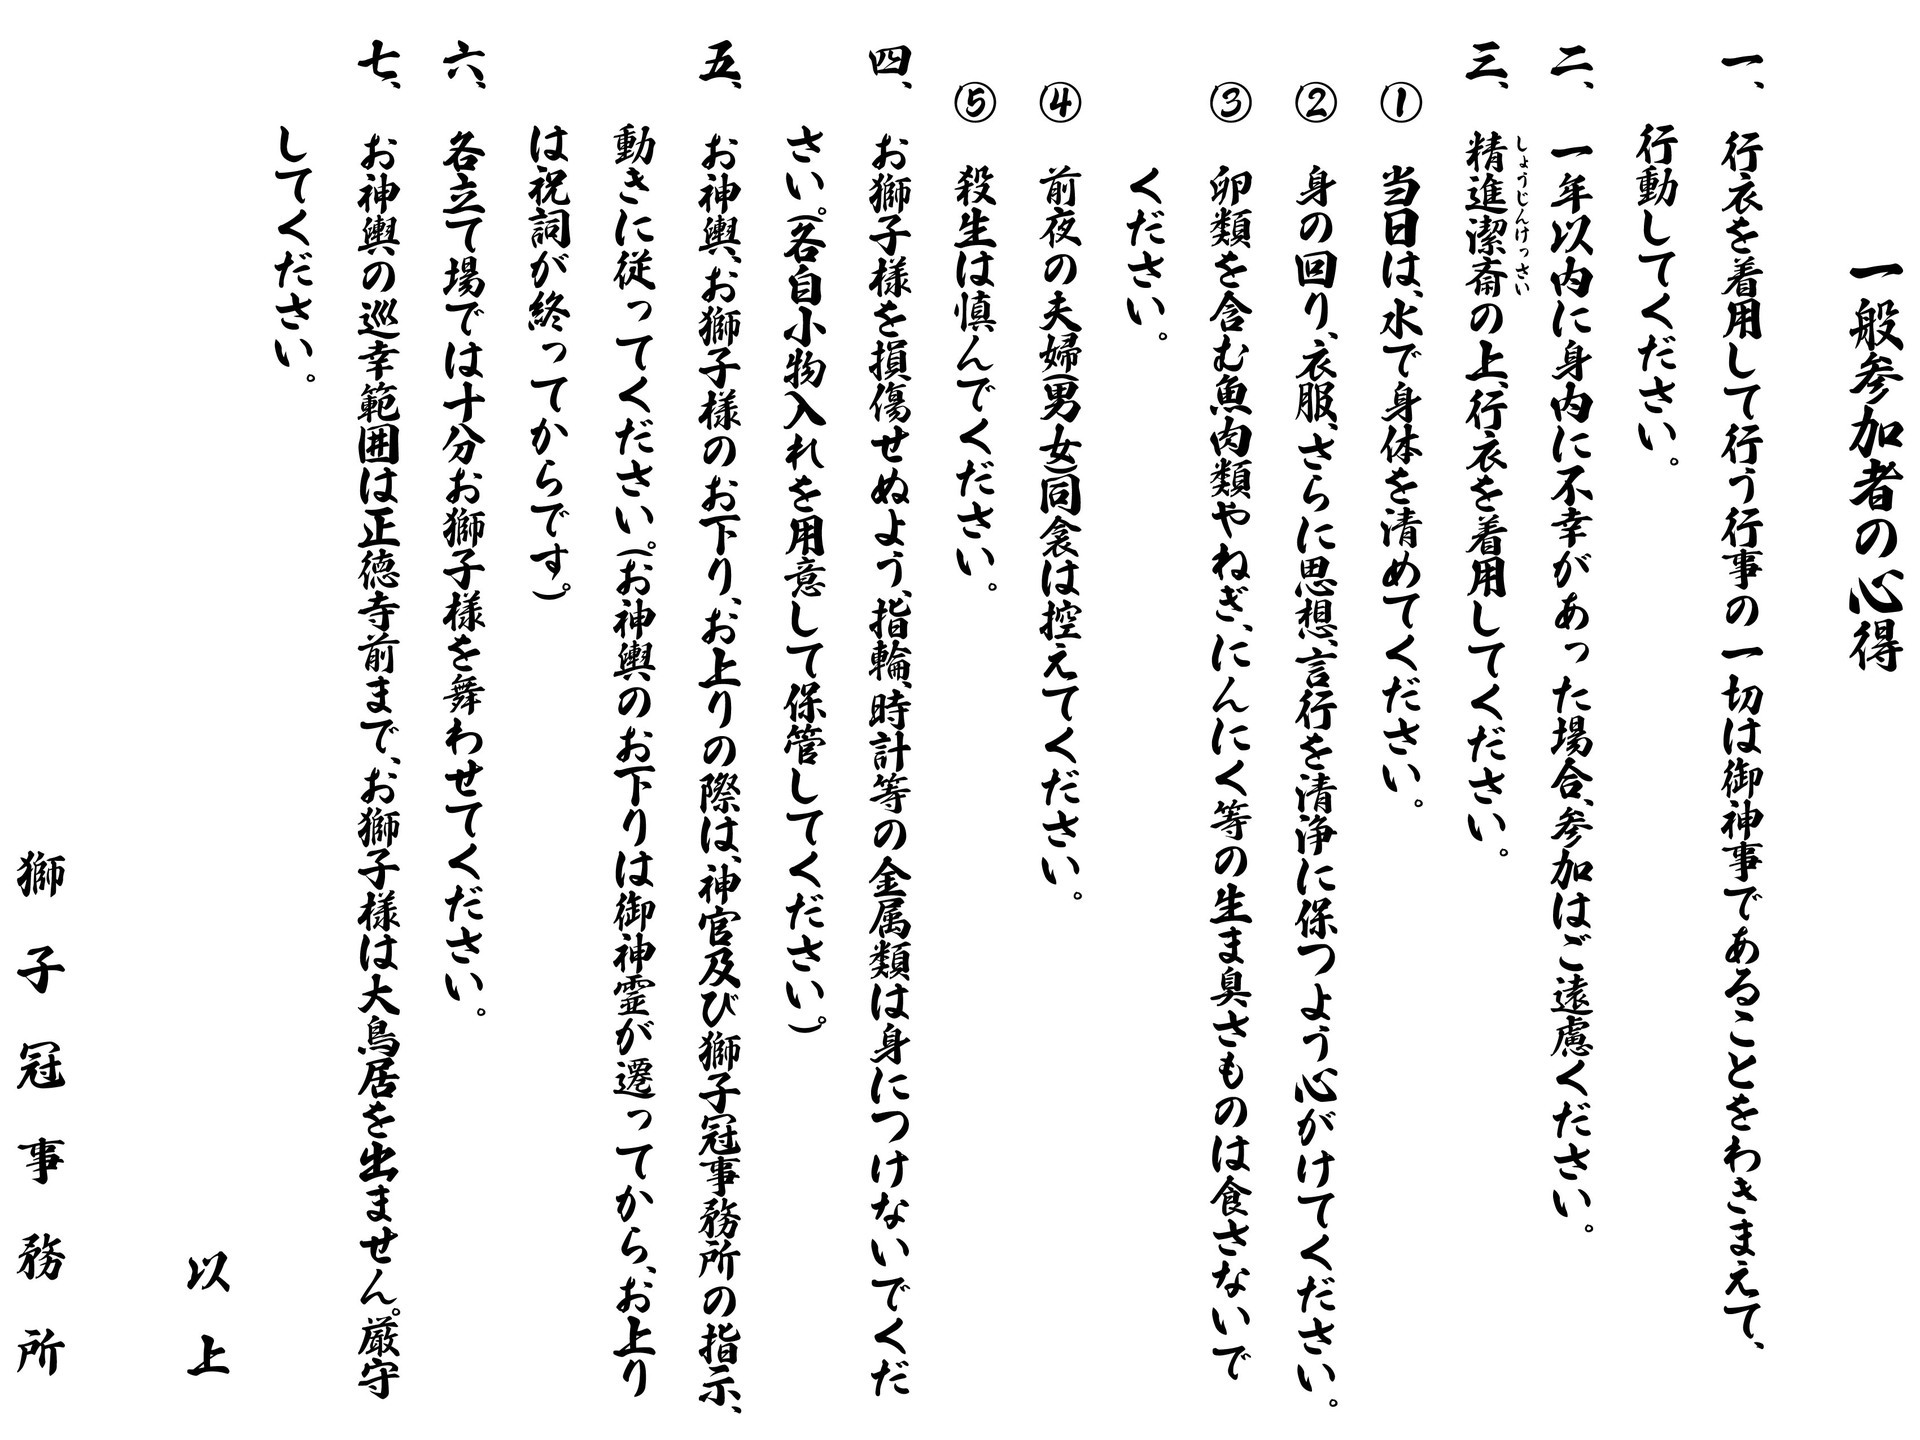 一般参加者の心得
一、行衣を着用して行う行事の一切は御神事であることをわきまえて、
行動してください。
二、一年以内に身内に不幸があった場合、参加はご遠慮ください。
三、精進潔斎の上、行衣を着用してください。
しょうじんけっさい
①当日は、水で身体を清めてください。
②身の回り、衣服、さらに思想、言行を清浄に保つよう心がけてください。
③卵類を含む魚肉類やねぎ、にんにく等の生ま臭さものは食さないで
ください。
④前夜の夫婦(男女)同衾は控えてください。
⑤殺生は慎んでください。
四、お獅子様を損傷せぬよう、指輪、時計等の金属類は身につけないでくだ
さい。(各自小物入れを用意して保管してください。)
五、お神輿、お獅子様のお下り、お上りの際は、神官及び獅子冠事務所の指示、
動きに従ってください。(お神輿のお下りは御神霊が遷ってから、お上り
は祝詞が終ってからです。)
六、各立て場では十分お獅子様を舞わせてください。
七、お神輿の巡幸範囲は正徳寺前まで、お獅子様は大鳥居を出ません。厳守
してください。
以上
獅子冠事務所